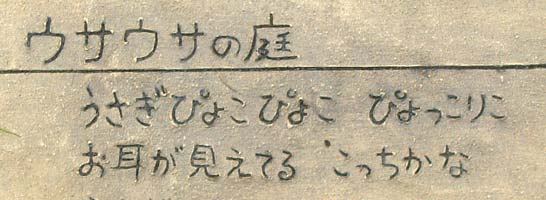 ウサウサの庭
うさぎぴょこぴょこ ぴょっこりこ
お耳が見えてる こっちかな